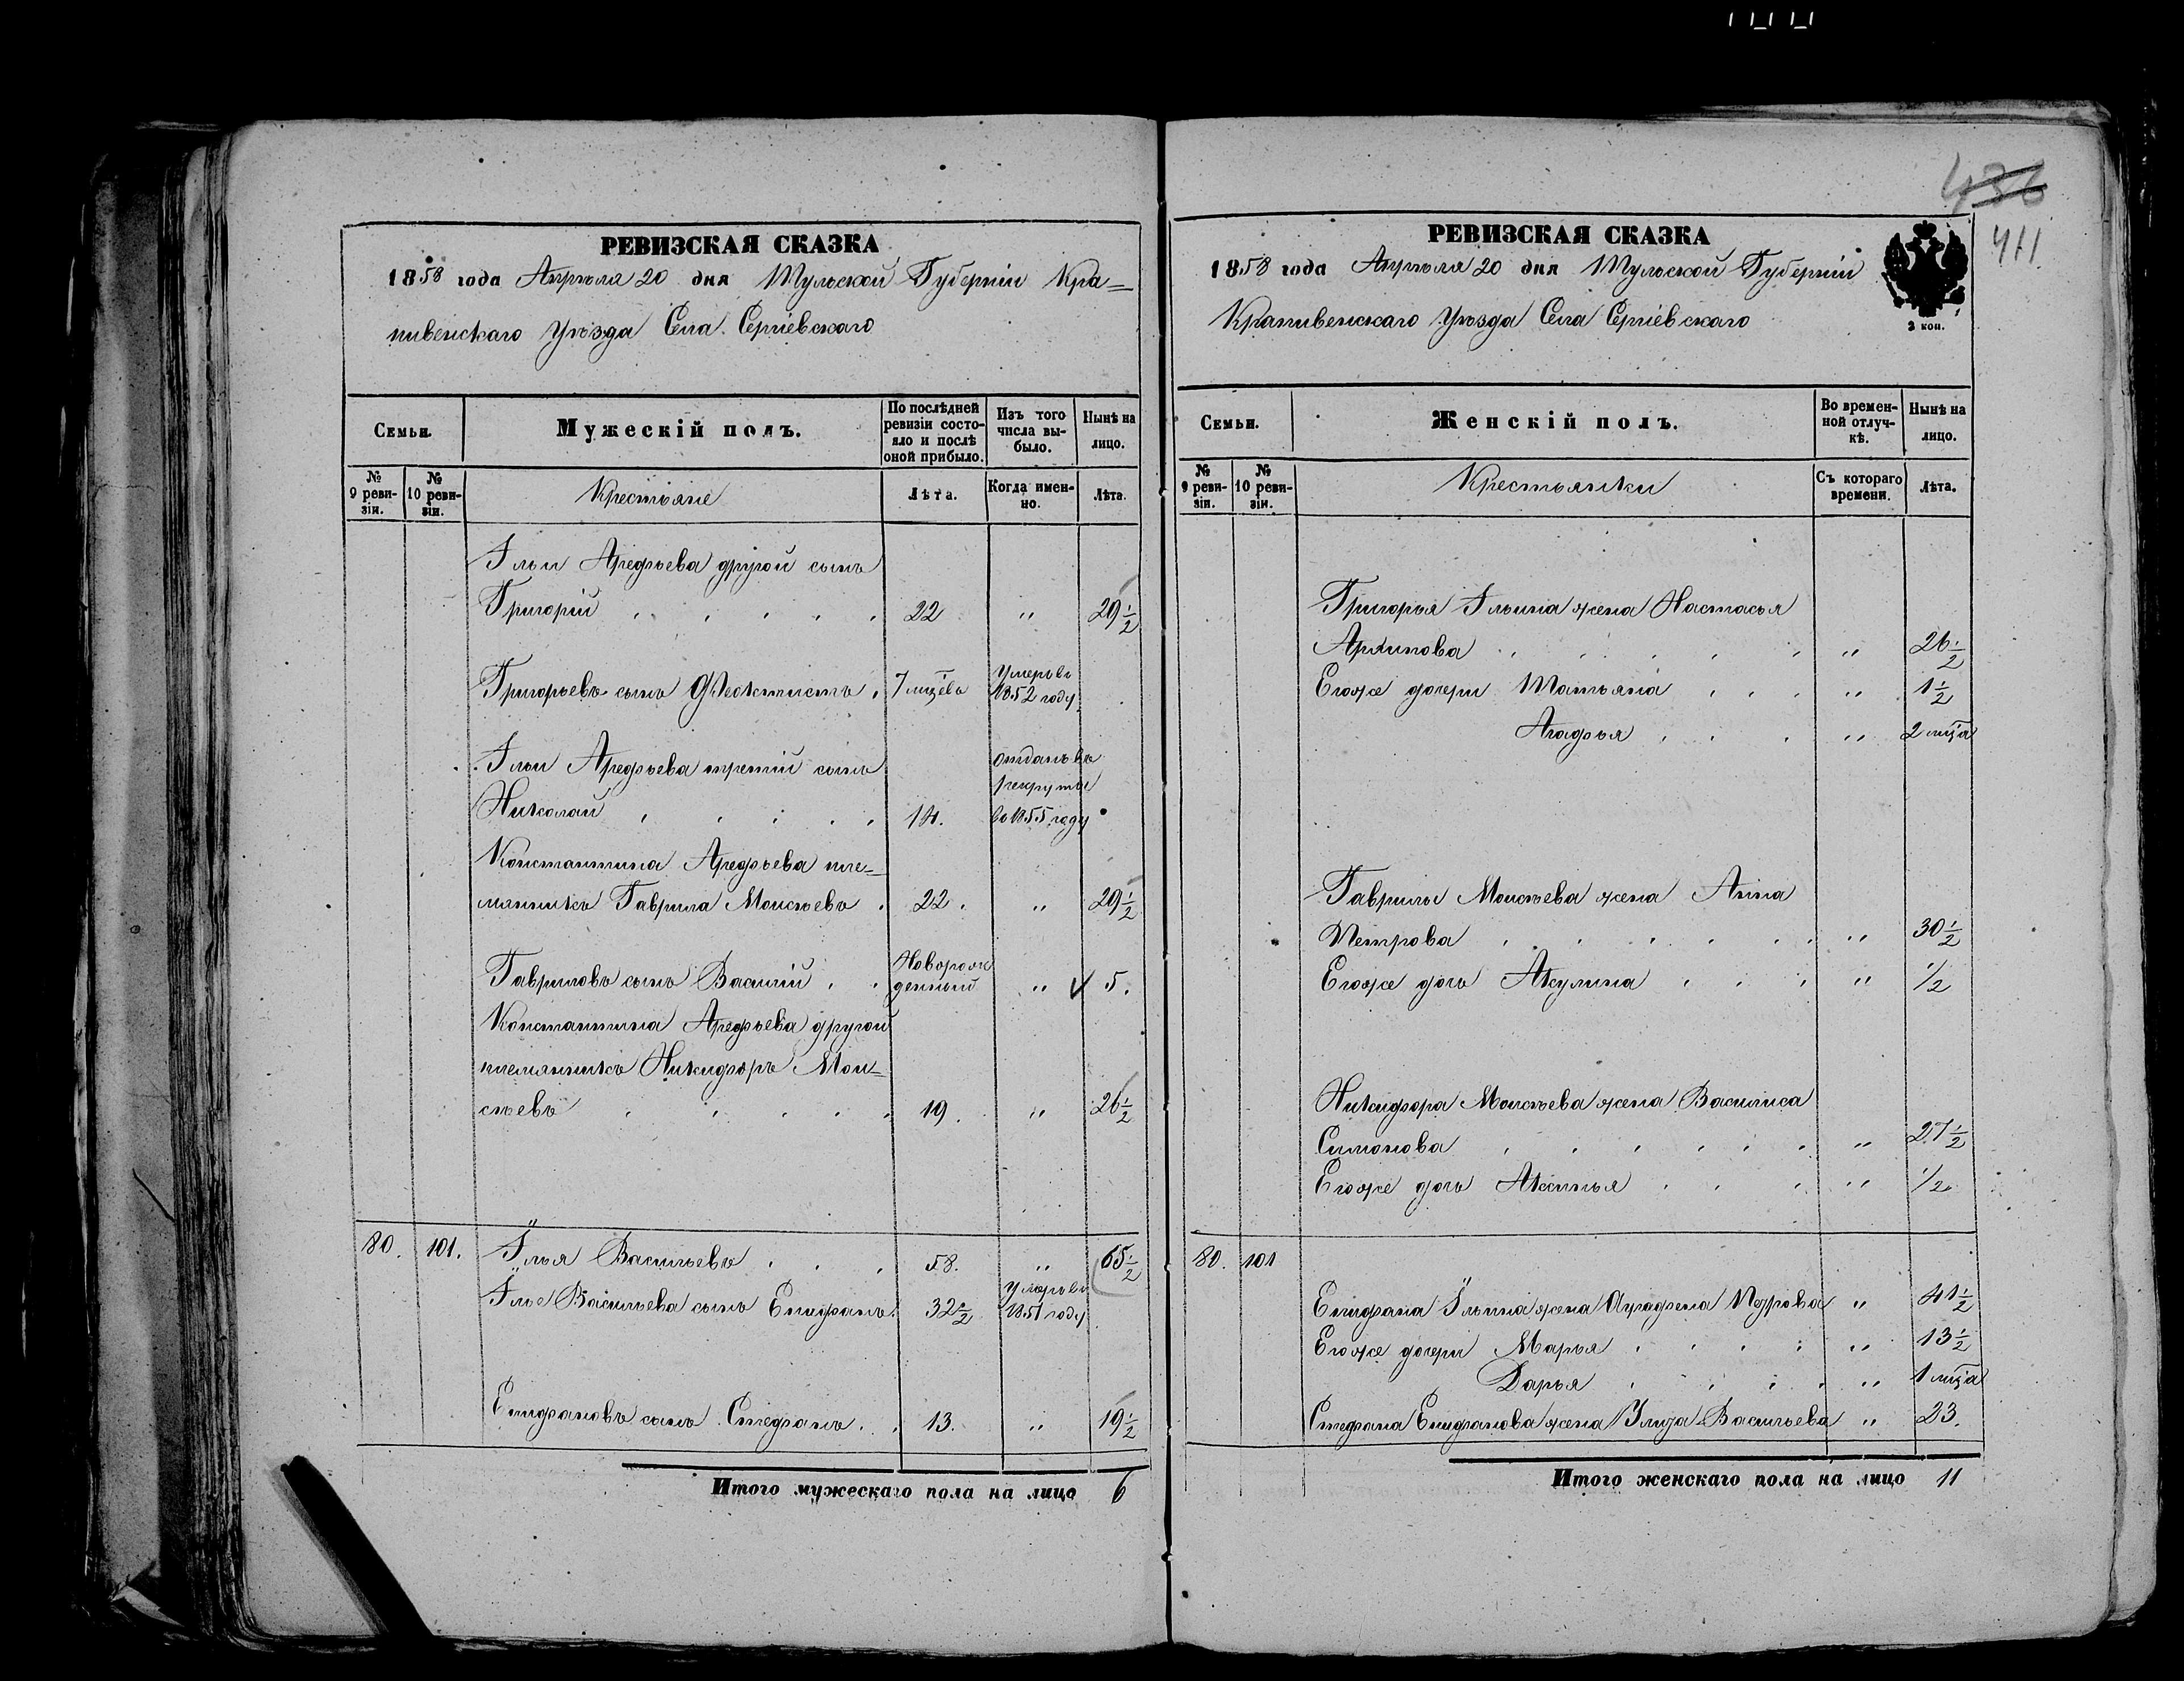 436
411
РЕВИЗСКАЯ СКАЗКА
1858 года Апрѣля 20 дня Тульской Губерніи Кра=
пивенскаго Уѣзда Села Сергіевскаго
Семьи.
Мужескій полъ.
По послѣдней ревизіи состояло и послѣ оной прибыло.
Изъ того числа выбыло.
Нынѣ на лицо.
№ 9 ревизіи.
№ 10 ревизіи.
Крестьяне
Лѣта.
Когда именно.
Лѣта.
Ильи Арефьева другой сынъ
Григорій 22 " 29 1/2
Григорьевъ сынъ Феоктистъ 7 мцевъ Умеръ въ 1852 году
Ильи Арефьева третій сынъ
Николай 14. отданъ въ рекруты въ 1855 году
Константина Арефьева пле=
мянникъ Гаврила Моисѣевъ 22. " 29 1/2
Гавриловъ сынъ Василій Новорожденный " 5.
Константина Арефьева другой
племянникъ Никифоръ Мои=
сѣевъ 19. " 26 1/2
80. 101. Илья Васильевъ 58. " 65 1/2
Ильи Васильева сынъ Епифанъ 32 1/2 Умеръ въ 1851 году
Епифановъ сынъ Стефанъ 13. " 19 1/2
Итого мужескаго пола на лицо 6
РЕВИЗСКАЯ СКАЗКА
1858 года Апрѣля 20 дня Тульской Губерніи
Крапивенскаго Уѣзда Села Сергіевскаго
2 коп.
Семьи.
Женскій полъ.
Во временной отлучкѣ.
Нынѣ на лицо.
№ 9 ревизіи.
№ 10 ревизіи.
Крестьянки
Съ котораго времени.
Лѣта.
Григорья Ильина жена Настасья
Архипова " 26 1/2
Егоже дочери Татьяна " 1 1/2
Агафья " 2 мца
Гаврилы Моисѣева жена Анна
Петрова " 30 1/2
Егоже дочь Акулина " 1/2
Никифора Моисѣева жена Василиса
Симонова " 27 1/2
Егоже дочь Аксинья " 1/2
80. 101
Епифана Ильина жена Аграфена Петрова " 41 1/2
Егоже дочери Марья " 13 1/2
Дарья " 1 мца
Стефана Епифанова жена Улита Васильева " 23.
Итого женскаго пола на лицо 11